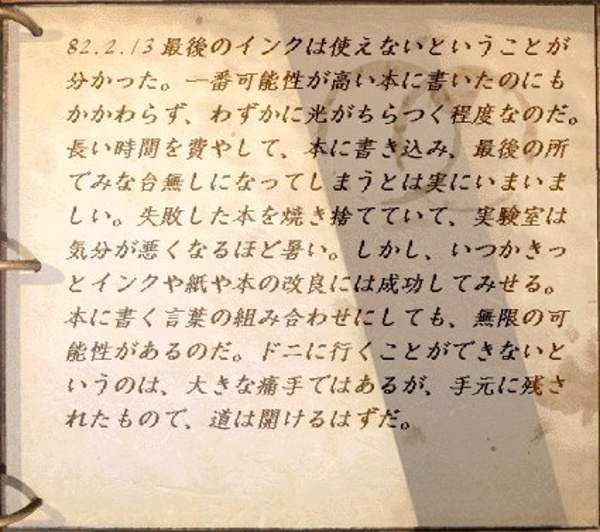 82.2.13 最後のインクは使えないということが
分かった。一番可能性が高い本に書いたのにも
かかわらず、わずかに光がちらつく程度なのだ。
長い時間を費やして、本に書き込み、最後の所
でみな台無しになってしまうとは実にいまいま
しい。失敗した本を焼き捨てていて、実験室は
気分が悪くなるほど暑い。しかし、いつかきっ
とインクや紙や本の改良には成功してみせる。
本に書く言葉の組み合わせにしても、無限の可
能性があるのだ。ドニに行くことができないと
いうのは、大きな痛手ではあるが、手元に残さ
れたもので、道は開けるはずだ。